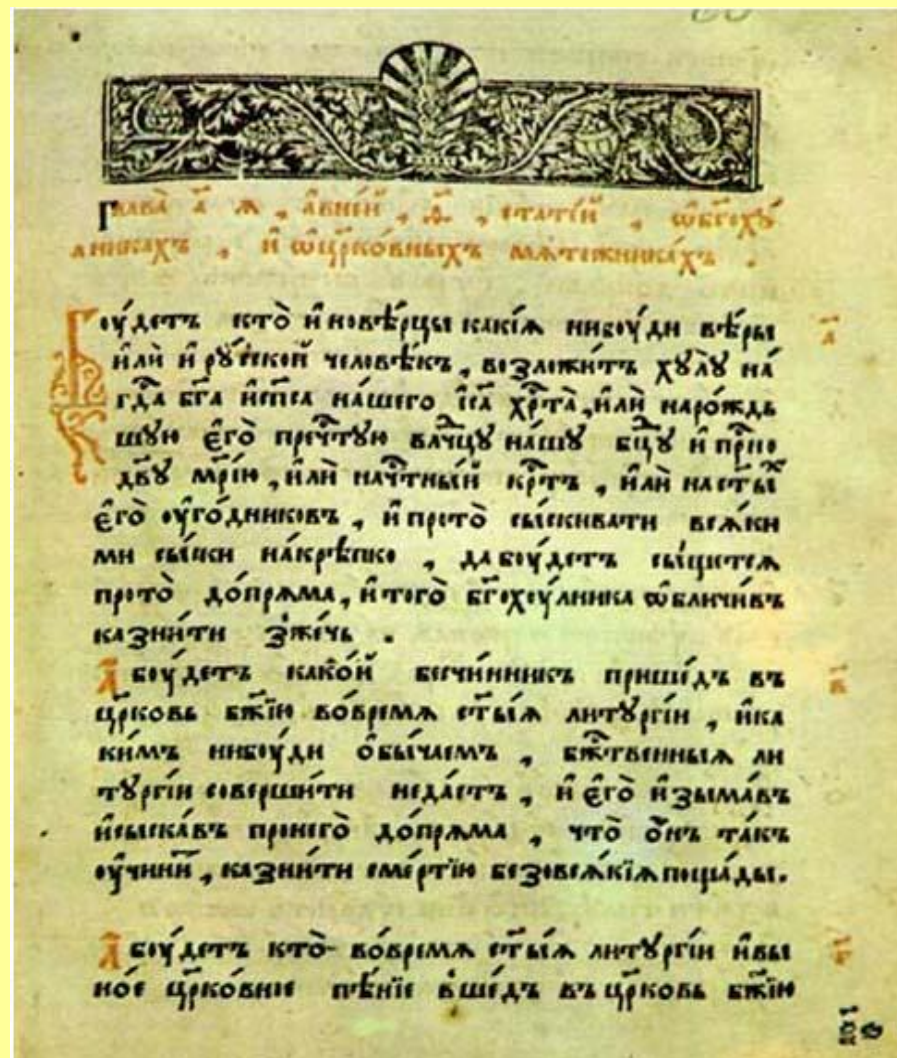 Глава̀ а҃ я , а҆ вне́й , ѳ҃ , статі́й , ѡ҆бг҃охꙋ́
лникахъ , и҆ ѡ҆цр҃ко́вныхъ мѧте́жникахъ .
Боу́детъ кто̀ и҆новѣ́рцы какі́ѧ нибоу́ди вѣ́ры а҃
и҆лѝ и҆рꙋ́ской человѣ́къ , возложи́тъ хꙋлꙋ̀ на́
гдⷭ҇а бг҃а и҆сп҃са на́шего і҆са҃ хрⷭ҇та̀ , и҆лѝ наро́ждь
шꙋю є҆го̀ преⷱ҇тꙋю влⷣчцꙋ на́шꙋ бцⷣꙋ и҆ приⷭ҇но
дв҃ꙋ мр҃і́ю , и҆лѝ наⷱ҇тны́й крⷭ҇тъ , и҆лѝ на ст҃ы́хъ
є҆го̀ оу҆го́дниковъ , и҆ прото̀ сы́скивати всѧ́ки
ми сы́ски на́крѣпко , да боу́детъ сы́щетсѧ
прото̀ до́прѧма , и҆того̀ бг҃охоу́лника ѡ҆бличи́въ
казни́ти зже́чь .
А҆ боу́детъ како́й безчи́нникъ прише́дъ въ в҃
цр҃ковь бж҃їю во́времѧ ст҃ы́ѧ литꙋргі́и , и҆ка
ки́мъ нибоу́ди ѻ҆бы́чаемъ , бжⷭ҇твенныѧ ли
тꙋргі́и соверши́ти неда́стъ , и҆ є҆го̀ и҆зыма́въ
и҆сыска́въ пронего̀ до́прѧма , что̀ ѻ҆́нъ та́къ
оу҆чини́тъ , казни́ти сме́ртїю безовсѧ́кїѧ поща́ды .
А҆ боу́детъ кто̀ во́времѧ ст҃ы́ѧ литꙋргі́и и҆вы г҃
но́е цр҃ко́вное пѣ́нїе вше́дъ въ цр҃ковь бж҃їю